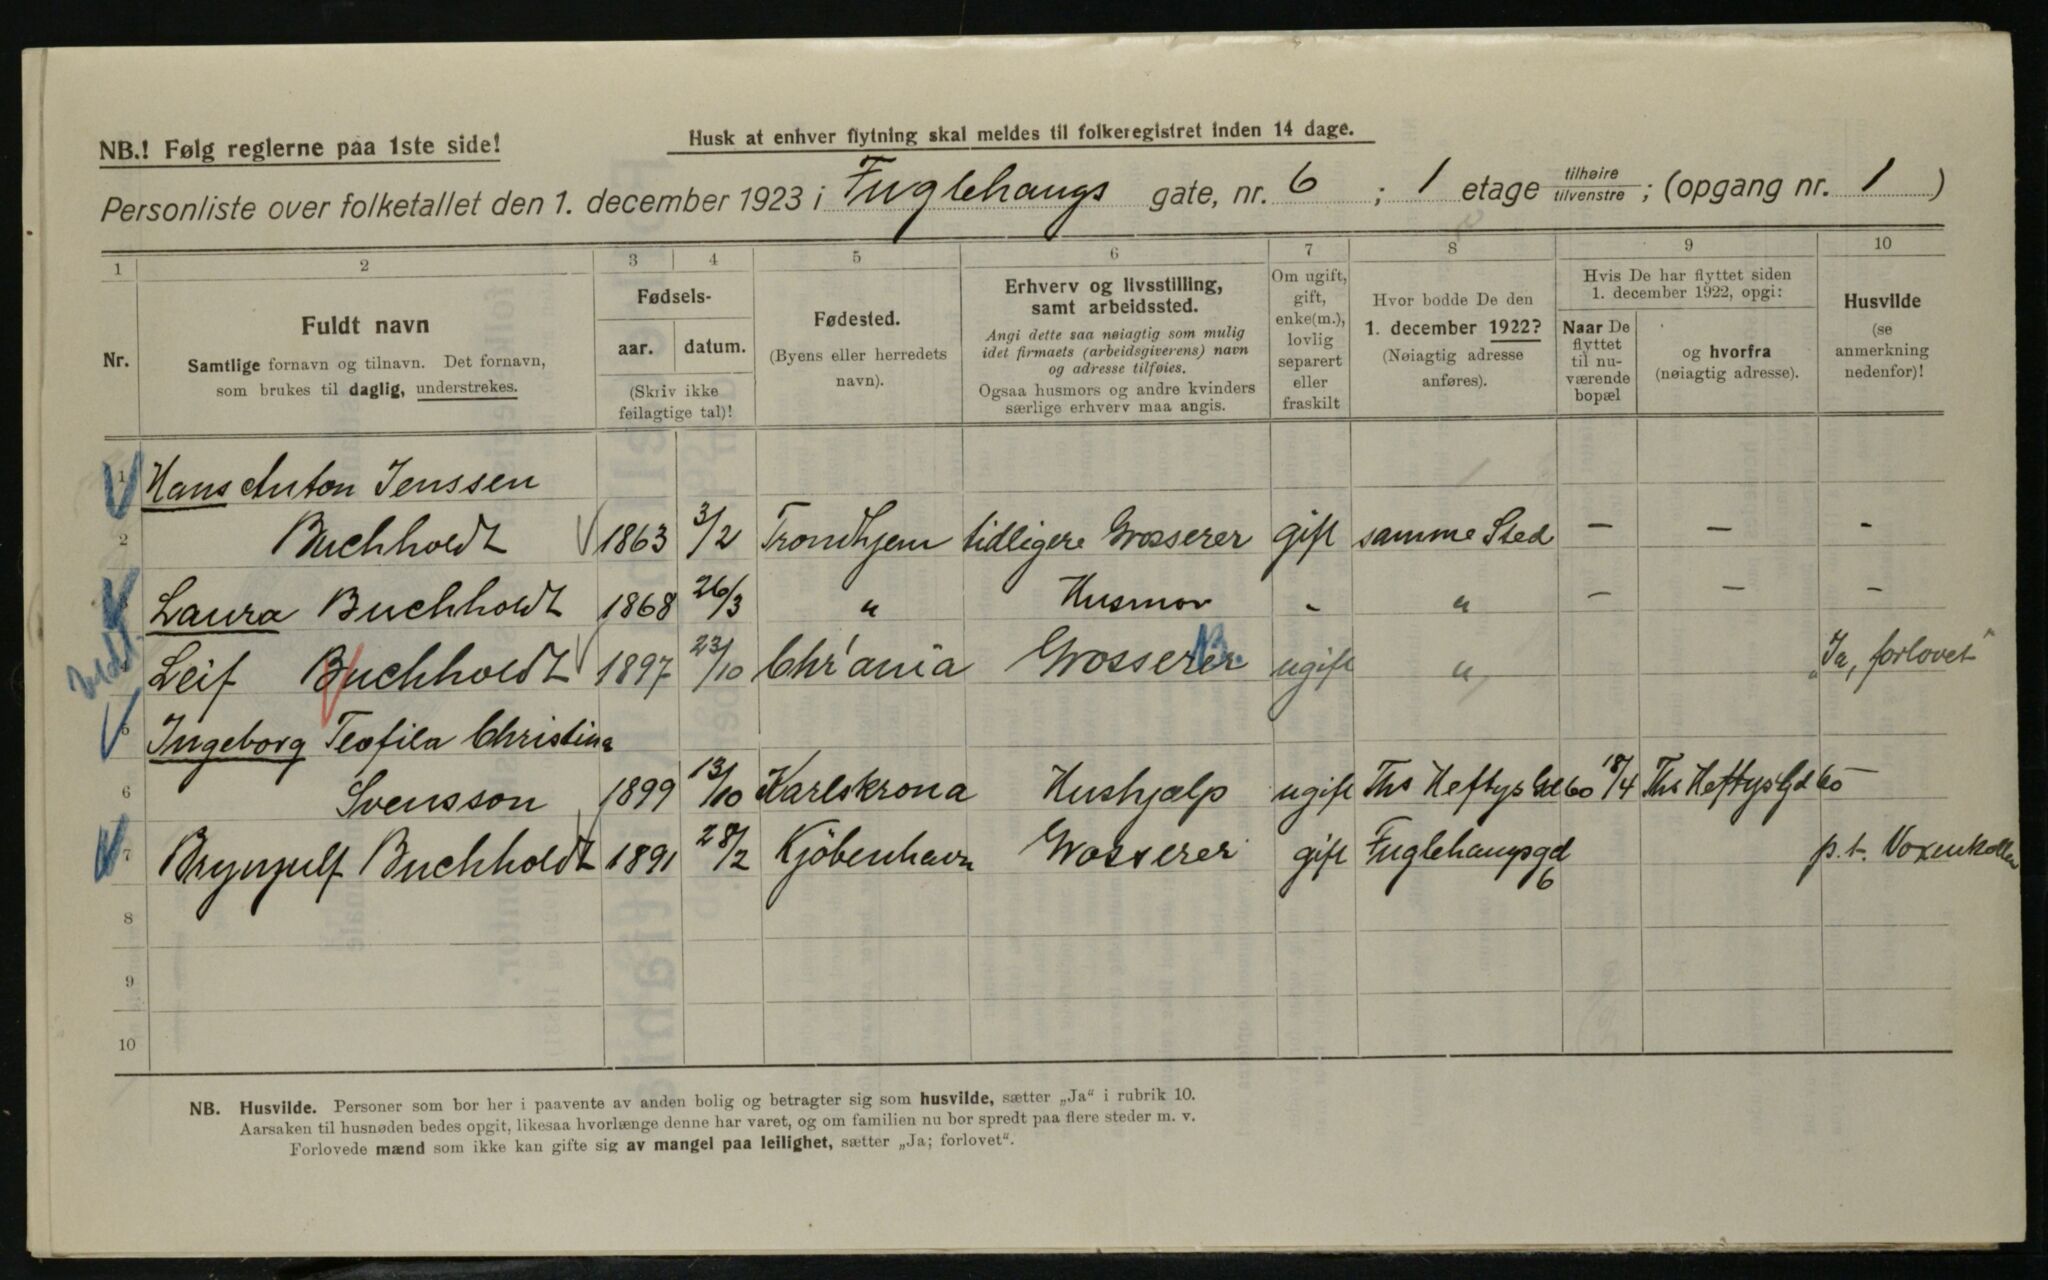 NB.! Følg reglerne paa 1ste side!
Husk at enhver flytning skal meldes til folkeregistret inden 14 dage.
Personliste over folketallet den 1. december 1923 i Fuglehaugs gate, nr. 6 ; 1 etage tilhøire tilvenstre ; (opgang nr. 1 )
1 2 3 4 5 6 7 8 9 10
Nr.
Fuldt navn
Samtlige fornavn og tilnavn. Det fornavn,
som brukes til daglig, understrekes.
Fødsels-
aar. datum.
(Skriv ikke
feilagtige tal)!
Fødested.
(Byens eller herredets
navn).
Erhverv og livsstilling,
samt arbeidssted.
Angi dette saa nøiagtig som mulig
idet firmaets (arbeidsgiverens) navn
og adresse tilføies.
Ogsaa husmors og andre kvinders
særlige erhverv maa angis.
Om ugift,
gift,
enke(m.),
lovlig
separert
eller
fraskilt
Hvor bodde De den
1. december 1922?
(Nøiagtig adresse
anføres).
Hvis De har flyttet siden
1. december 1922, opgi:
Naar De
flyttet
til nu-
værende
bopæl
og hvorfra
(nøiagtig adresse).
Husvilde
(se
anmerkning
nedenfor)!
1 Hans Anton Jenssen
2 Buchholdt 1863 3/2 Trondhjem tidligere Grosserer gift samme Sted — — -
Laura Buchholdt 1868 26/3 " Husmor - " — — -
4 Leif Buchholdt 1897 23/10 Chr'ania Grosserer ugift " "Ja, forlovet"
5 Ingeborg Teofila Christina
6 Svensson 1899 13/10 Karlskrona Hushjælp ugift Ths Heftys Gd 60 18/4 Ths Heftys Gd 60 —
7 Brynjulf Buchholdt 1891 28/2 Kjöbenhavn Grosserer gift Fuglehaugsgd 6 p.t. Voxenkollen
8
9
10
NB. Husvilde. Personer som bor her i paavente av anden bolig og betragter sig som husvilde, sætter „Ja“ i rubrik 10.
Aarsaken til husnøden bedes opgit, likesaa hvorlænge denne har varet, og om familien nu bor spredt paa flere steder m. v.
Forlovede mænd som ikke kan gifte sig av mangel paa leilighet, sætter „Ja; forlovet“.